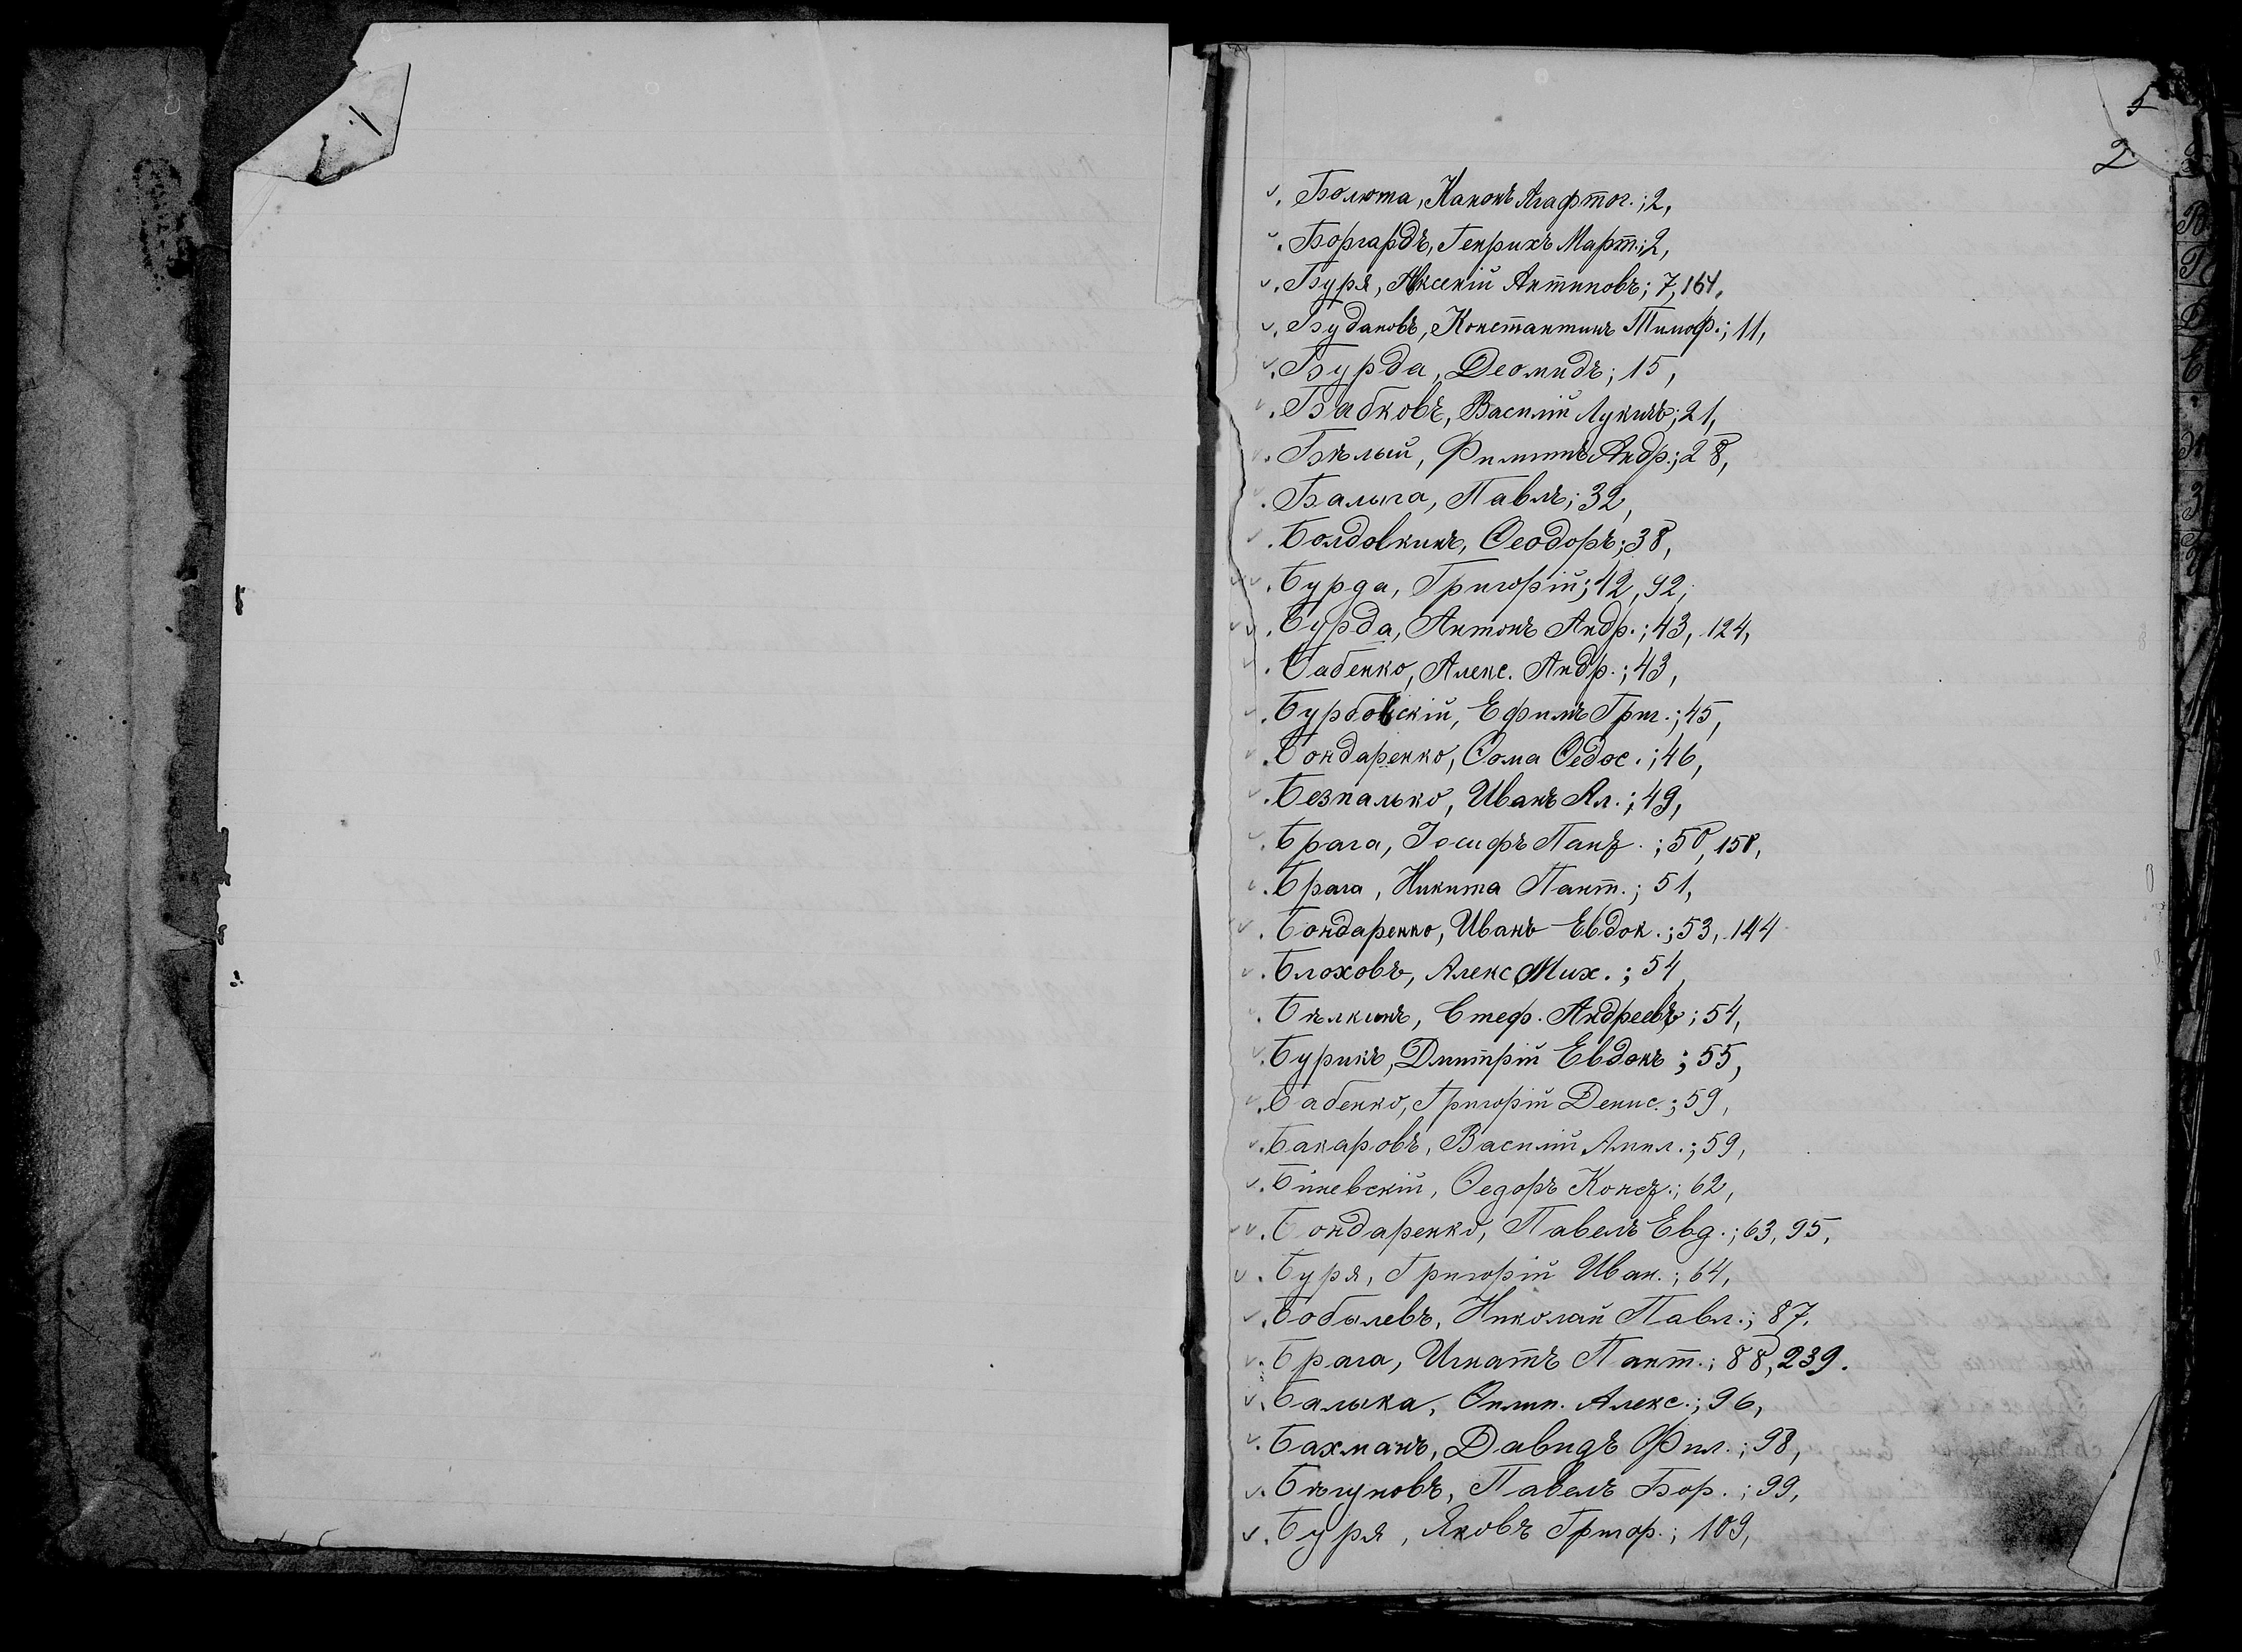 5
2
Болюта, Канонъ Агафтог.; 2,
Боргардъ, Генрихъ Март.; 2,
Буря, Авксений Антиповъ; 7, 164,
Будановъ, Константинъ Тимоф.; 11,
Бурда, Деомидъ; 15,
Бабковъ, Василій Лукичъ; 21,
Бѣлый, Филиппъ Андр.; 28,
Балыга, Павлъ; 32,
Болдовкинъ, Ѳеодоръ; 38,
Бурда, Григорій; 42, 92,
Бурда, Антонъ Андр.; 43, 124,
Бабенко, Алекс. Андр.; 43,
Бурбовскій, Ефимъ Григ.; 45,
Бондаренко, Ѳома Ѳедос.; 46,
Безпалько, Иванъ Ал.; 49,
Брага, Іосифъ Пант.; 50, 158,
Брага, Никита Пант.; 51,
Бондаренко, Иванъ Евдок.; 53, 144
Блоховъ, Алекс Мих.; 54,
Бѣлкинъ, Стеф. Андреевъ; 54,
Бурикъ, Дмитрій Евдок; 55,
Бабенко, Григорій Денис.; 59,
Бакаровъ, Василій; 59,
Ѳедоръ Конст.; 62,
Бондаренко, Павелъ Евд.; 63, 95,
Буря, Григорій Иван.; 64,
Бобылевъ, Николай Павл.; 87.
Брага, Игнатъ Пант.; 88, 239.
Балыка, Филип. Алекс.; 96,
Бахманъ, Давидъ Фил.; 98,
Бѣгуновъ, Павелъ Бор.; 99,
Буря, Яковъ Григор.; 109,